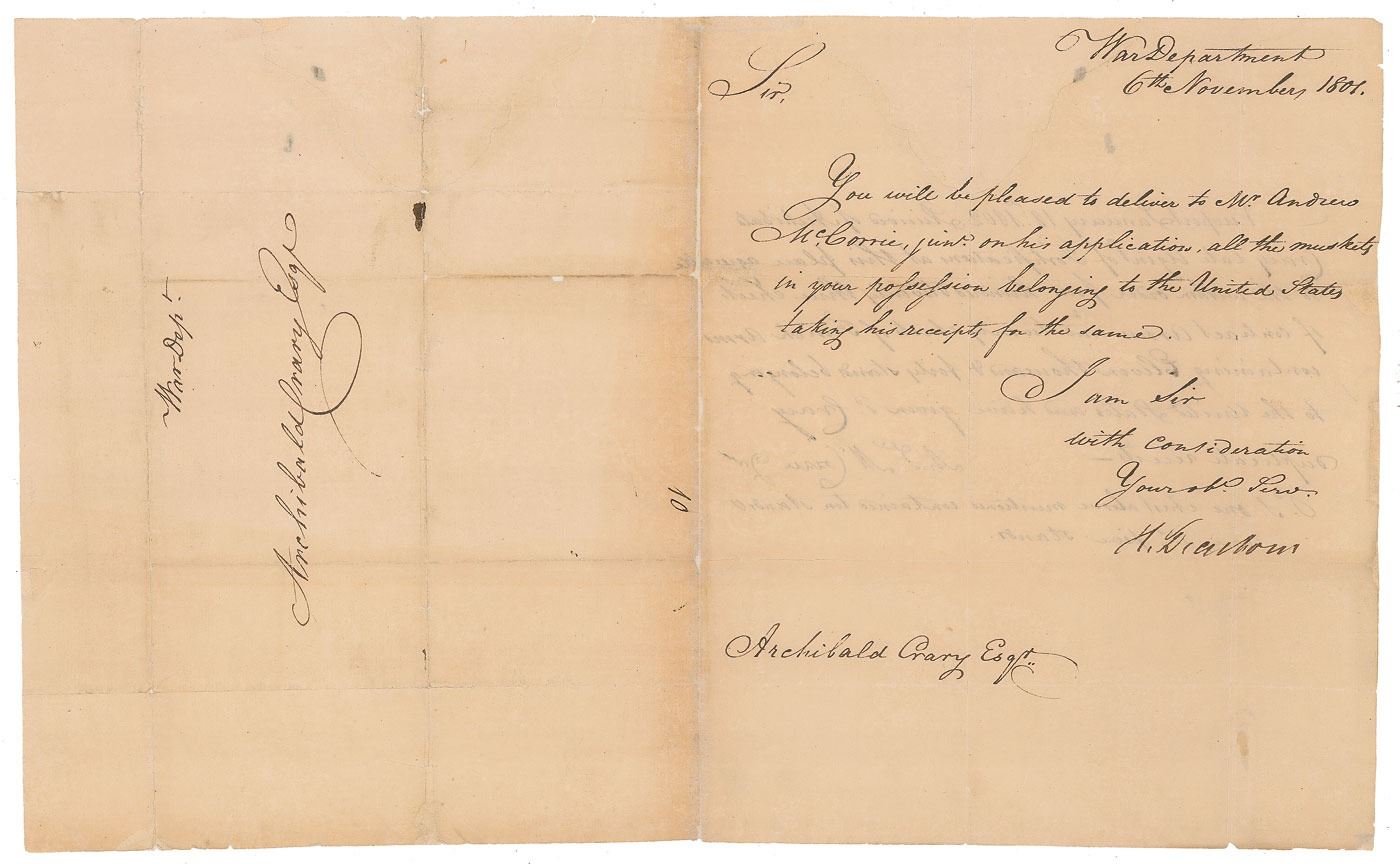 War Department
6th November, 1801.
Sir,
You will be pleased to deliver to Mr. Andrew
McCorrie, junr. on his application, all the muskets
in your possession belonging to the United States
taking his receipts for the same.
I am Sir
with consideration
Your obt. Servt.
H. Dearborn
Archibald Crary Esqr.
War Dept.
Archibald Crary Esqr
10